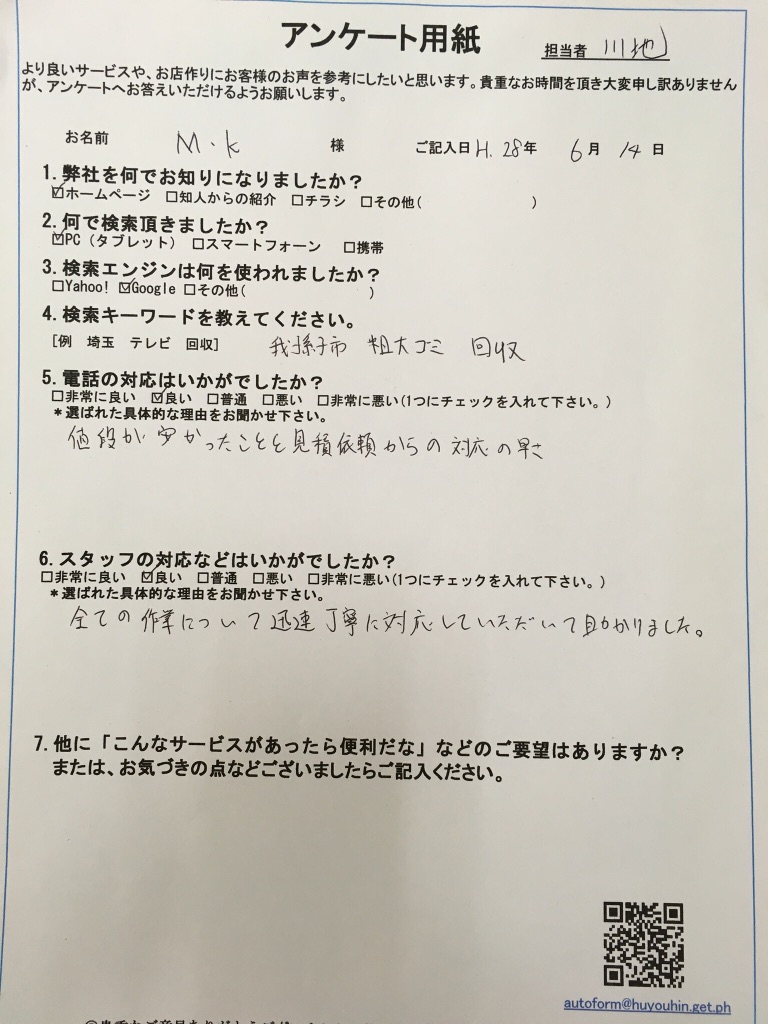 アンケート用紙
担当者 川地
より良いサービスや、お店作りにお客様のお声を参考にしたいと思います。貴重なお時間を頂き大変申し訳ありません
が、アンケートへお答えいただけるようお願いします。
お名前 M・K 様 ご記入日 H.28年 6月 14日
1. 弊社を何でお知りになりましたか？
☑ホームページ □知人からの紹介 □チラシ □その他( )
2. 何で検索頂きましたか？
☑PC（タブレット） □スマートフォーン □携帯
3. 検索エンジンは何を使われましたか？
□Yahoo! ☑Google □その他( )
4. 検索キーワードを教えてください。
[例 埼玉 テレビ 回収] 我孫子市 粗大ゴミ 回収
5. 電話の対応はいかがでしたか？
□非常に良い ☑良い □普通 □悪い □非常に悪い(1つにチェックを入れて下さい。)
＊選ばれた具体的な理由をお聞かせ下さい。
値段が安かったことと見積依頼からの対応の早さ
6. スタッフの対応などはいかがでしたか？
□非常に良い ☑良い □普通 □悪い □非常に悪い(1つにチェックを入れて下さい。)
＊選ばれた具体的な理由をお聞かせ下さい。
全ての作業について迅速丁寧に対応していただいて助かりました。
7. 他に「こんなサービスがあったら便利だな」などのご要望はありますか？
または、お気づきの点などございましたらご記入ください。
autoform@huyouhin.get.ph